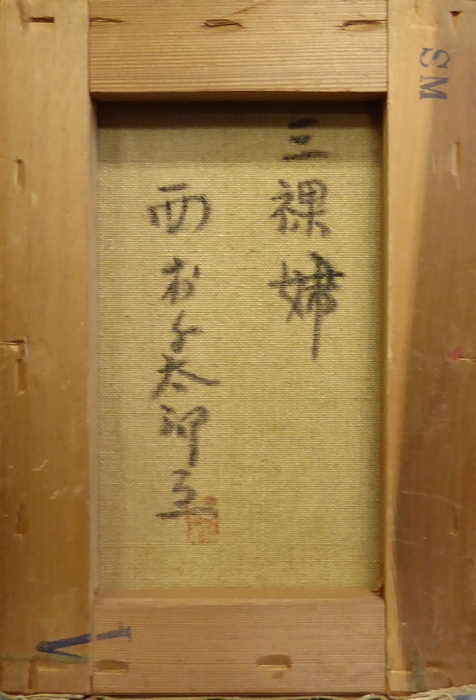 三裸婦
西村千太郎
SM